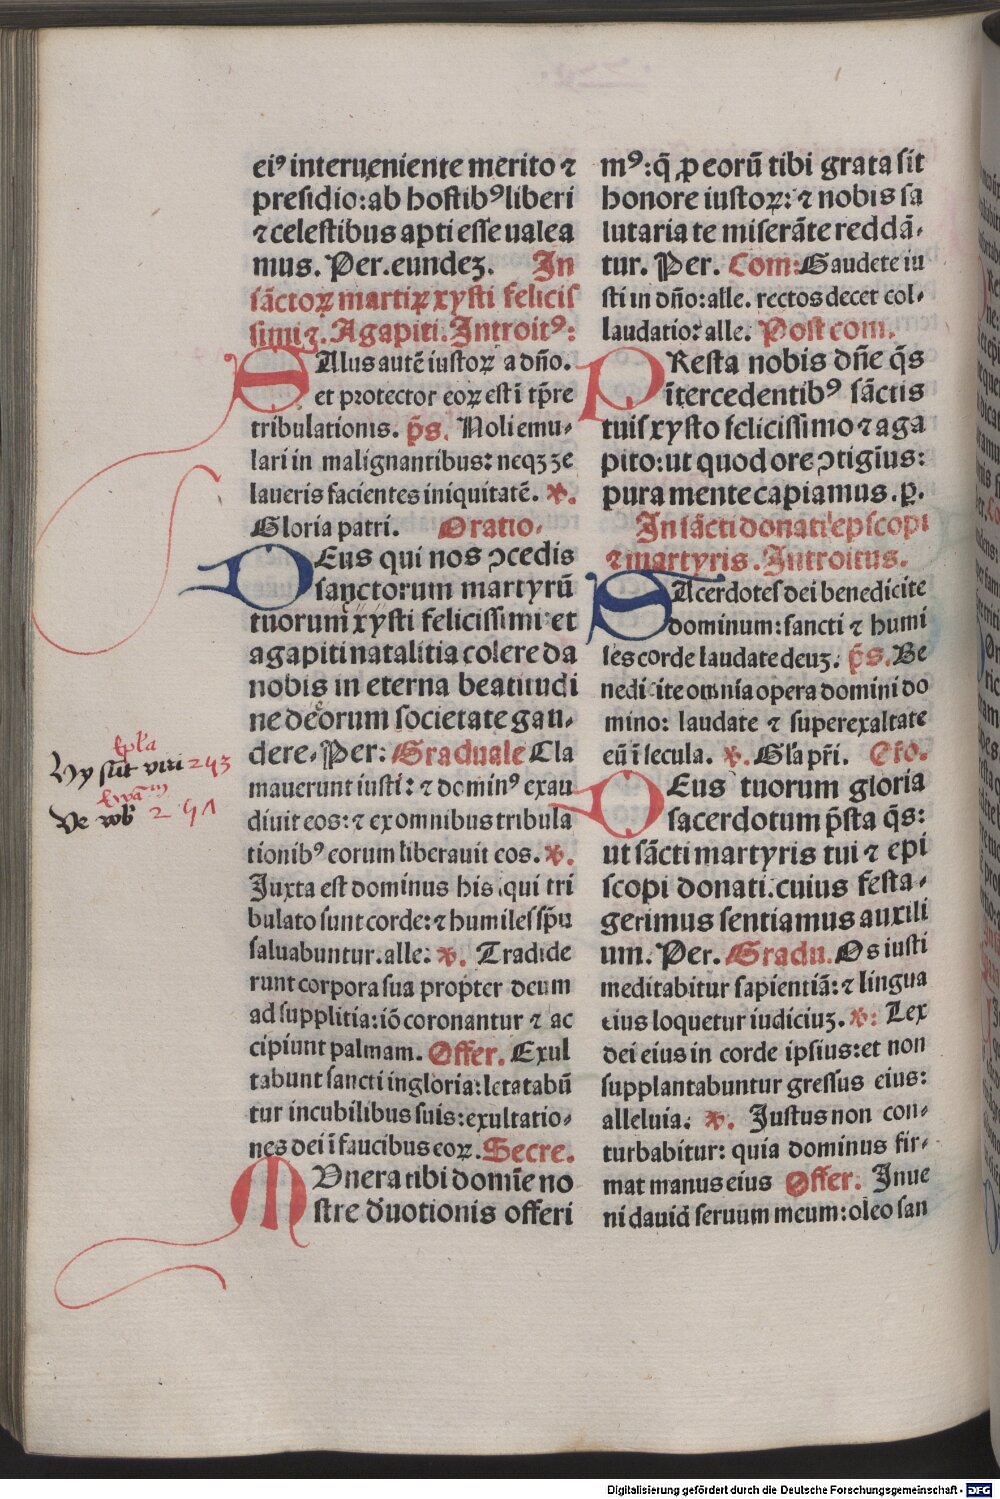 eiꝰ interueniente merito ⁊
presidio: ab hostibꝰ liberi
⁊ celestibus apti esse ualea
mus. Per. eundeʒ. In
sāctoꝝ martiꝝ xysti felicis
simi ʒ. Agapiti. Introitꝰ:
SAlus autē iustoꝝ a dño.
et protector eoꝝ est ī tp̄re
tribulationis. p̄s. Noli emu⸗
lari in malignantibus: neqʒ ʒe
laueris facientes iniquitatē. ℣.
Gloria patri. Oratio.
DEus qui nos ↄcedis
sanctorum martyrū
tuorum xysti felicissimi et
agapiti natalitia colere da
nobis in eterna beatitudi
ne de eorum societate gau⸗
dere. Per: Graduale Cla
mauerunt iusti: ⁊ dominꝰ exau
diuit eos: ⁊ ex omnibus tribula
tionibꝰ eorum liberauit eos. ℣.
Juxta est dominus his qui tri
bulato sunt corde: ⁊ humiles sp̄u
saluabuntur. alle: ℣. Tradide
runt corpora sua propter deum
ad supplitia: iō coronantur ⁊ ac
cipiunt palmam. Offer. Exul
tabunt sancti in gloria: letatabū
tur in cubilibus suis: exultatio⸗
nes dei ī faucibus eoꝝ. Secre.
MUnera tibi domīe no
stre d̄uotionis offeri
mꝰ: q̄ ꝓ eorū tibi grata sit
honore iustoꝝ: ⁊ nobis sa
lutaria te miserāte reddā⸗
tur. Per. Com: Gaudete iu
sti in dño: alle. rectos decet col⸗
laudatio: alle. Post com.
PResta nobis dñe q̄s
ītercedentibꝰ sāctis
tuis xysto felicissimo ⁊ aga
pito: ut quod ore ↄtigius:
pura mente capiamus. p̱.
In sācti donati epíscopi
⁊ martyris. Introitus.
SAcerdotes dei benedicite
dominum: sancti ⁊ humi
les corde laudate deuʒ. p̄s. Be
nedicite omnia opera domini do
mino: laudate ⁊ superexaltate
eū ī secula. ℣. Gl̄a p̄ri. Oro.
DEus tuorum gloria
sacerdotum p̄sta q̄s:
ut sācti martyris tui ⁊ epi
scopi donati. cuius festa⸗
gerimus sentiamus auxili
um. Per. Gradu. Os iusti
meditabitur sapientiā: ⁊ lingua
eius loquetur iudiciuʒ. ℣: Lex
dei eius in corde ipsius: et non
supplantabuntur gressus eius:
alleluia: ℣. Justus non con⸗
turbabitur: quia dominus fir⸗
mat manus eius Offer. Inue
ni dauid seruum meum: oleo san
Ep̄l'a
Hy sūt viri 243
Ewāᵐ
Ve vob' 251
Digitalisierung gefördert durch die Deutsche Forschungsgemeinschaft - DFG